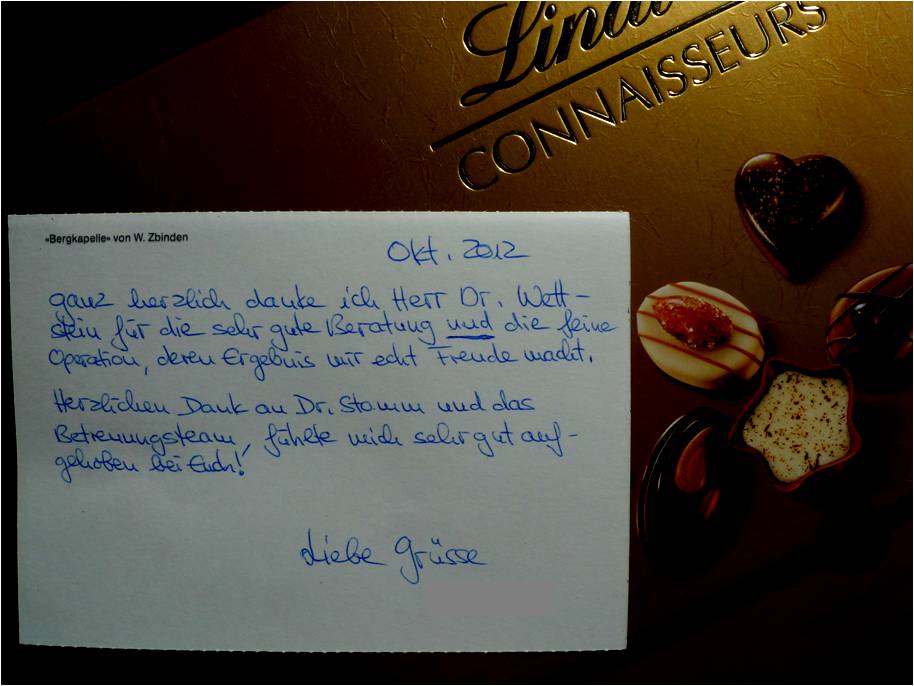 Lindt
CONNAISSEURS
«Bergkapelle» von W. Zbinden
Okt. 2012
ganz herzlich danke ich Herr Dr. Wett-
stein für die sehr gute Beratung und die feine
Operation, deren Ergebnis mir echt Freude macht.
Herzlichen Dank an Dr. Stamm und das
Betreuungsteam, fühlte mich sehr gut auf-
gehoben bei Euch!
Liebe Grüsse